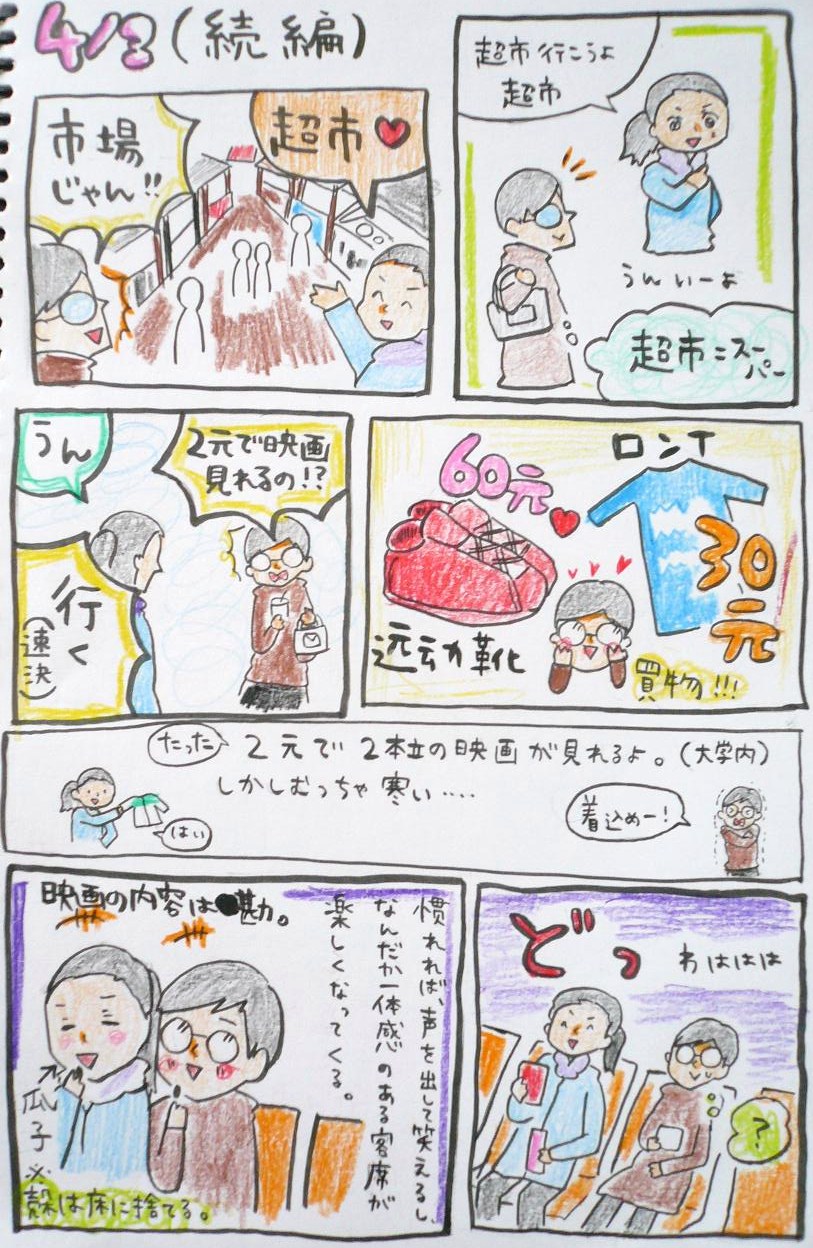 4/3(続編)
超市行こうよ
超市
うんいーよ
超市=スー
パー
超市♥
市場
じゃん!!
ロンT
30
元
60元
运动靴
買物!!!
2元で映画
見れるの!?
うん
行く
(速決)
たった
2元で2本立の映画が見れるよ。(大学内)
しかしむっちゃ寒い....
はい
着込めー!
どっ
わははは
?
映画の内容は勘。
慣れれば、声を出して笑えるし、
なんだか一体感のある客席が
楽しくなってくる。
瓜子※
殻は床に捨てる。